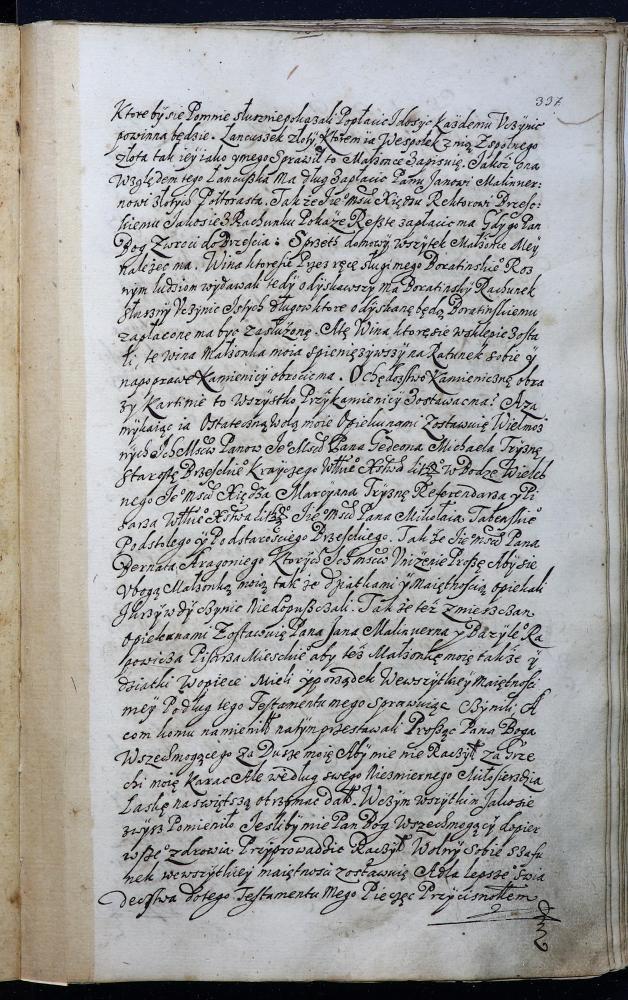 337
Ktore by sie Pommie słusznie pokazali Popłacic I dosyc Kazdemu Uczynic
powinna będzie. Łancuszek złoty Ktorem ia Wespołek z nią Zspolnego
złota tak iey iako y mego Sprawił to Małzonce Zapisuię. Jakoz Ona
Względem tego Łancuszka Ma dług Zapłacic Panu Janowi Malinwer:
nowi złotych Pułtorasta. Takze Ie° Mści Xiędzu Rektorowi Brzesc:
skiemu Jako sie z Rachunku Pokaze Resztę zapłacic ma Gdy go Pan
Bog Zwroci do Brzescia: Sprzęt domowy wszytek Małzonce Mey
nalezec ma. Wina ktore sie Przez ręce sługi mego Boratinskie° Roz
nym ludziom wydawali tedy odyskawszy ma Boratinsky Rachunek
słuszny Uczynic I stych długow ktore odyskane będą Boratinskiemu
zapłacone ma byc zasłuzone. Ale Wina ktore sie w sklepie Zosta
li, te wina Małzonka moia spienięzywszy na Ratunek sobie y
na poprawę Kamienicy obrocic ma. Ochędostwo Kamieniczne obra
zy Kartinie to Wszystko Przy kamienicy Zostawac ma: A za
mykaiąc ia Ostateczną Wolą moię Opiekunami Zostawuię Wielmoz
nych Ich Mściow Panow Ie° Mści Pana Gedeona Michała Tryznę
Starostę Brzeskie° Krayczego W° Xstwa Lit° w Bodze Wieleb
nego Ie° Mści Xiędza Marcyana Tryznę Referendarza y Pi
sarza W° Xstwa Lit° Ie° Mści Pana Mikołaia
Podstolego y Podstarosciego Brzeskiego. Takze Ie° Mści Pana
Bernata Aragoniego Ktorych Ich Mściow Unizenie Proszę Aby sie
Ubogą Małzonką moią takze Dziatkami y Maiętnoscią opiekali
I krzywdy Czynic Niedopuszczali. Tak ze tez z mieszczan
Opiekunami Zostawuię Pana Jana Malinwerna y Bazyle° Ra
powicza Pisarza Mieskie° aby tez Małzonkę moię takze y
dziatki Wopiece Mieli y porządek Wewszytkiey Maiętnosci
mey Podług tego Testamentu mego Sprawuiąc Czynili. A
com komu namienił na tym przestawali Prosząc Pana Boga
Wszechmogącego Za Duszę moię Aby mie nie Raczył za Grze
chi moie Karac Ale według swego Niezmiernego Miłosierdzia
Łaskę naswiętszą otrzymac dał. W czym wszytkim Jako sie
zwysz Pomieniło Jesliby mie Pan Bog Wszechmogący do pier
wsze° zdrowia Przyprowadzic Raczył Wolny Sobie Szafu
nek wewszytkiey maiętnosci zostawuię A dla lepsze° Swia
dectwa do tego Testamentu Mego Pieczęc Przycisnołem